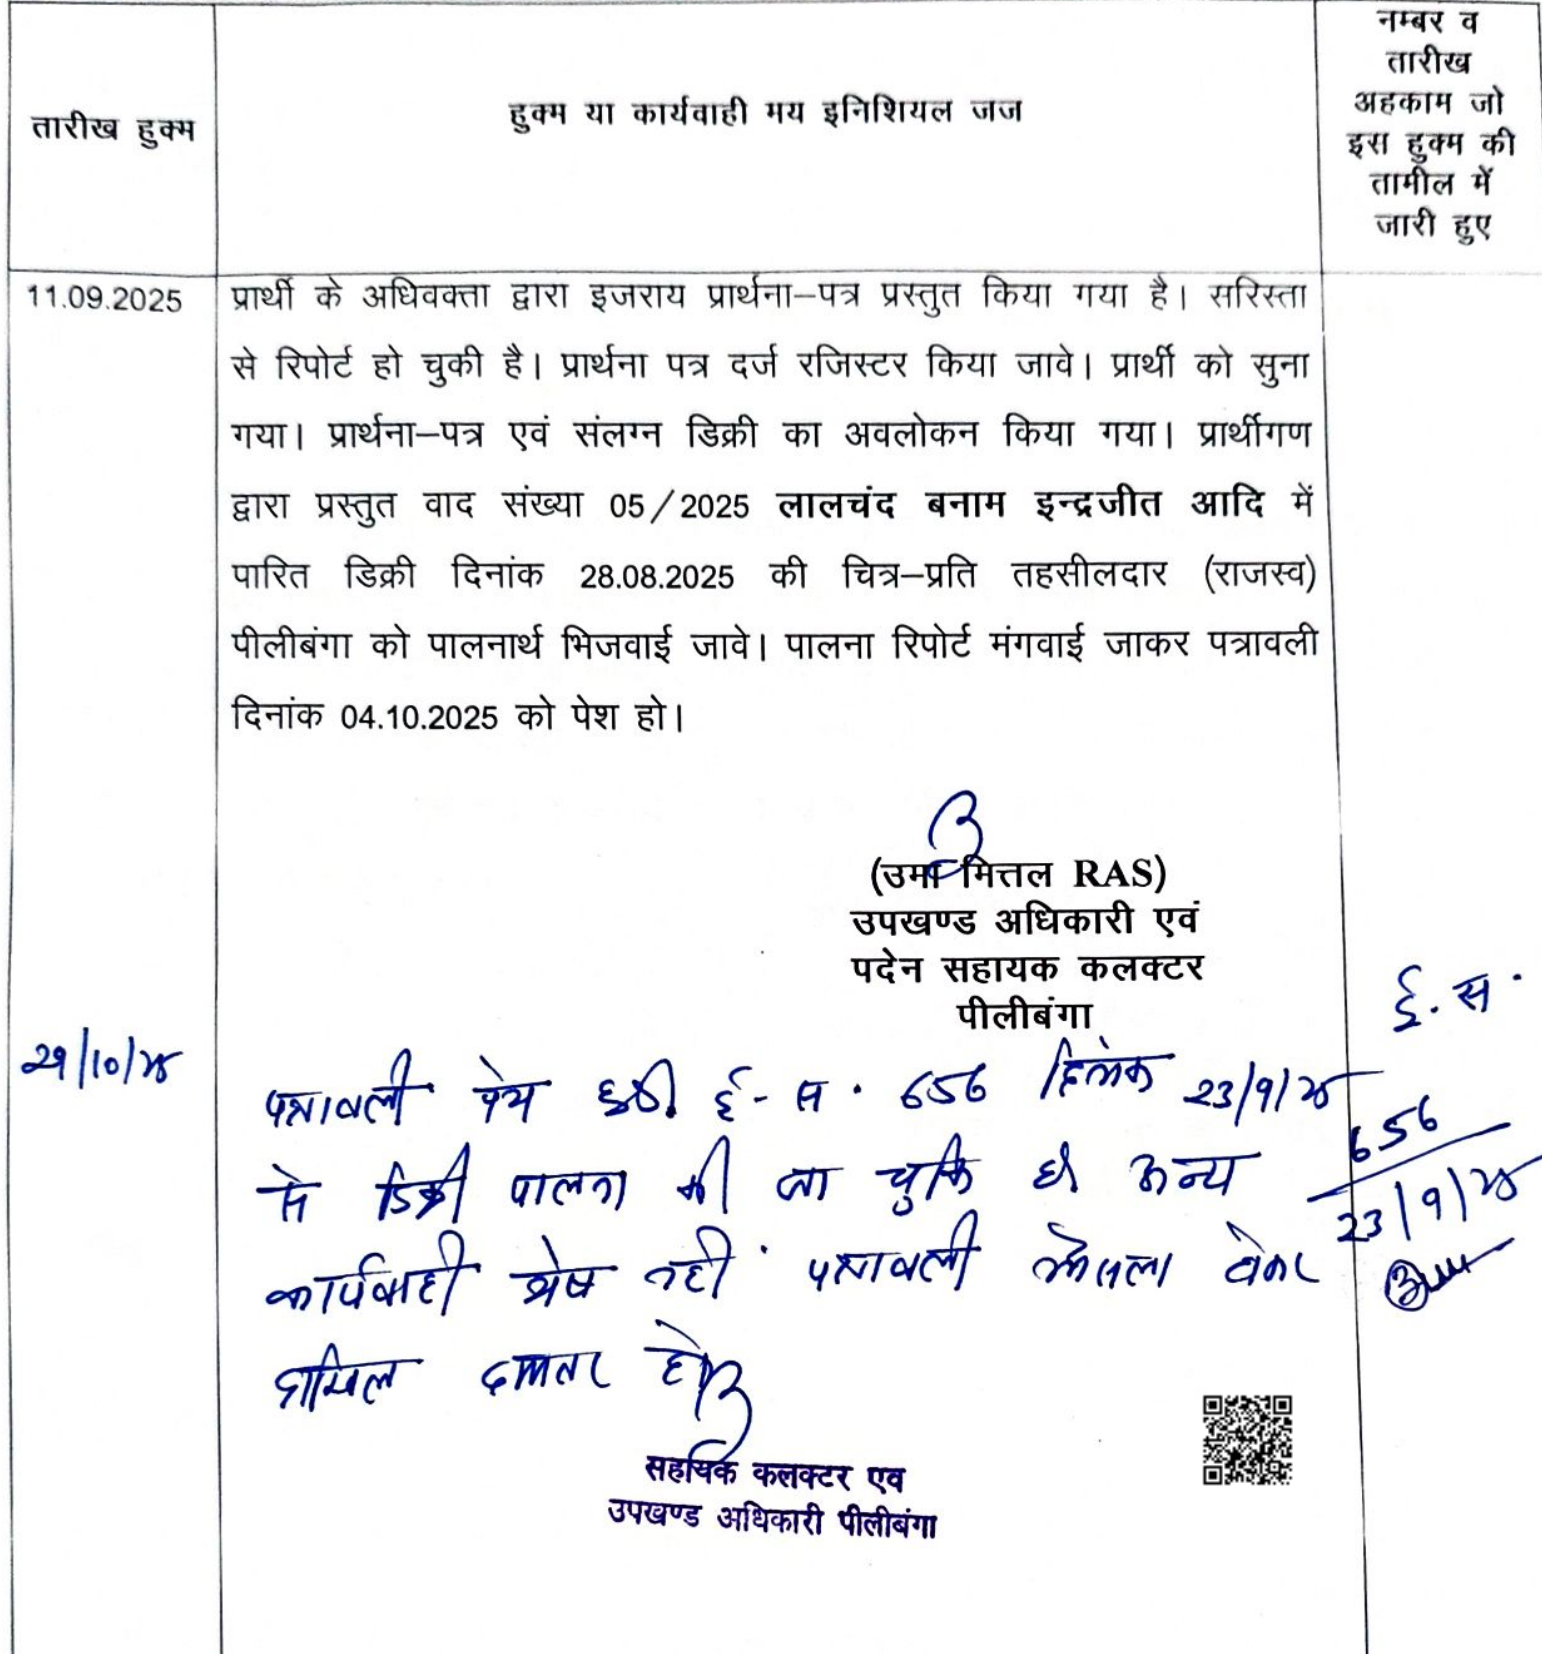 तारीख हुक्म
हुक्म या कार्यवाही मय इनिशियल जज
नम्बर व
तारीख
अहकाम जो
इस हुक्म की
तामील में
जारी हुए
11.09.2025
प्रार्थी के अधिवक्ता द्वारा इजराय प्रार्थना–पत्र प्रस्तुत किया गया है। सरिस्ता
से रिपोर्ट हो चुकी है। प्रार्थना पत्र दर्ज रजिस्टर किया जावे। प्रार्थी को सुना
गया। प्रार्थना–पत्र एवं संलग्न डिक्री का अवलोकन किया गया। प्रार्थीगण
द्वारा प्रस्तुत वाद संख्या 05/2025 लालचंद बनाम इन्द्रजीत आदि में
पारित डिक्री दिनांक 28.08.2025 की चित्र–प्रति तहसीलदार (राजस्व)
पीलीबंगा को पालनार्थ भिजवाई जावे। पालना रिपोर्ट मंगवाई जाकर पत्रावली
दिनांक 04.10.2025 को पेश हो।
(उमा मित्तल RAS)
उपखण्ड अधिकारी एवं
पदेन सहायक कलक्टर
पीलीबंगा
पत्रावली पेश हुई ई-स. 656 दिनांक 23/9/25
से डिक्री पालना की जा चुकि है अन्य
कार्यवाही शेष नहीं पत्रावली फैसला होकर
दाखिल दफ्तर हो
ई.स.
656
23/9/25
सहायक कलक्टर एव
उपखण्ड अधिकारी पीलीबंगा